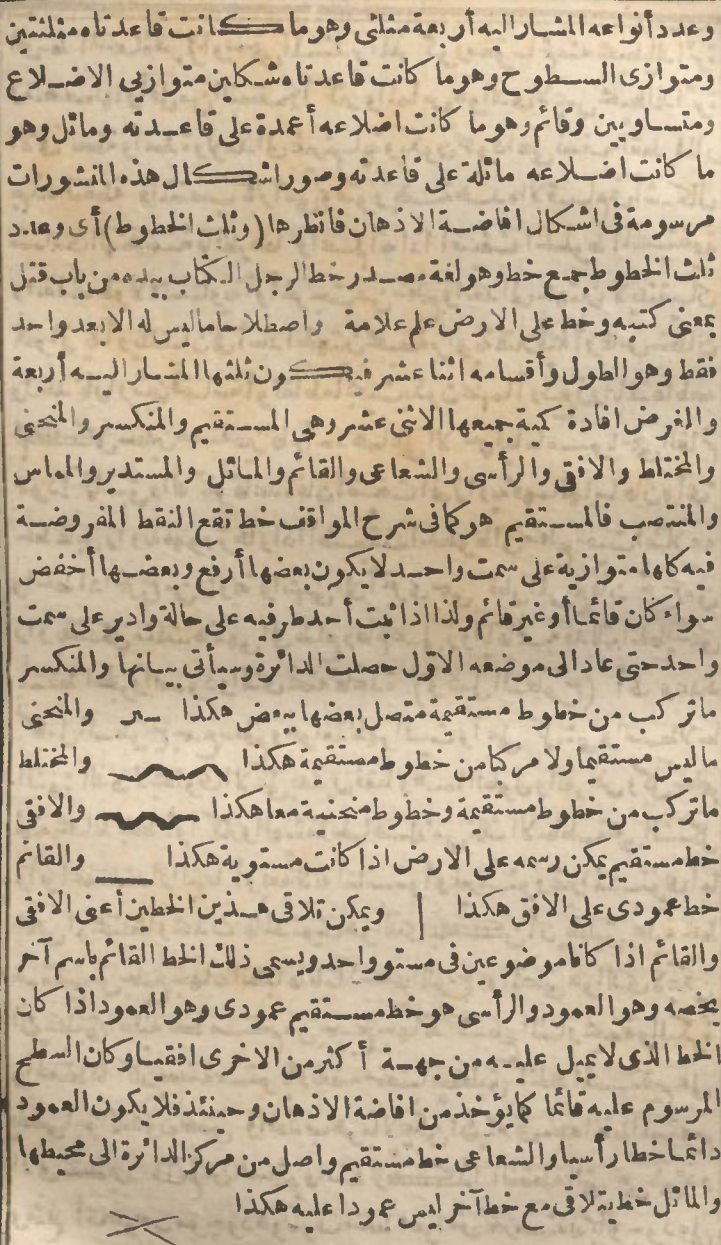 وعدد أنواعه المشار اليه أربعة مثلثى وهو ما كانت قاعدتاه مثلثتين
ومتوازى السطوح وهو ما كانت قاعدتاه شكلين متوازيى الاضلاع
ومتساويين وقائم وهو ما كانت اضلاعه أعمدة على قاعدته ومائل وهو
ما كانت اضلاعه مائلة على قاعدته وصور اشكال هذه المنشورات
مرسومة فى اشكال افاضة الاذهان فانظرها (وثلث الخطوط) أى وعدد
ثلث الخطوط جمع خط وهو لغة مصدر خط الرجل الكتاب بيده من باب قتل
بمعنى كتبه وخط على الارض علم علامة واصطلاحا ماليس له الا بعد واحد
فقط وهو الطول وأقسامه اثنا عشر فيكون ثلثها المشار اليه أربعة
والغرض افادة كمية جميعها الاثنى عشر وهى المستقيم والمنكسر والمنحنى
والمختلط والافقى والرأسى والشعاعى والقائم والمائل والمستدير والمماس
والمنتصب فالمستقيم هو كما فى شرح المواقف خط تقع النقط المفروضة
فيه كلها متوازية على سمت واحد لا يكون بعضها أرفع وبعضها أخفض
سواء كان قائما أو غير قائم ولذا اذا ثبت أحد طرفيه على حالة وادير على سمت
واحد حتى عاد الى موضعه الاول حصلت الدائرة وسيأتى بيانها والمنكسر
ما تركب من خطوط مستقيمة متصل بعضها ببعض هكذا والمنحنى
ما ليس مستقيما ولا مركبا من خطوط مستقيمة هكذا والمختلط
ما تركب من خطوط مستقيمة وخطوط منحنية معا هكذا والافقى
خط مستقيم يمكن رسمه على الارض اذا كانت مستوية هكذا والقائم
خط عمودى على الافق هكذا ويمكن تلاقى هذين الخطين أعنى الافقى
والقائم اذا كانا موضوعين فى مستو واحد ويسمى ذلك الخط القائم باسم آخر
يخصه وهو العمود والرأسى هو خط مستقيم عمودى وهو العمود اذا كان
الخط الذى لا يميل عليه من جهة أكثر من الاخرى افقيا وكان السطح
المرسوم عليه قائما كما يؤخذ من افاضة الاذهان وحينئذ فلا يكون العمود
دائما خطا رأسيا والشعاعى خط مستقيم واصل من مركز الدائرة الى محيطها
والمائل خط يتلاقى مع خط آخر ليس عمودا عليه هكذا